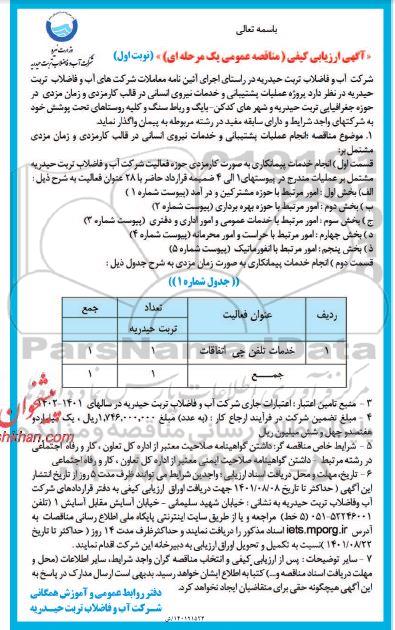 باسمه تعالی
وزارت نیرو
شرکت آب و فاضلاب تربت حیدریه
« آگهی ارزیابی کیفی ( مناقصه عمومی یک مرحله ای ) » (نوبت اول)
شرکت آب و فاضلاب تربت حیدریه در راستای اجرای آئین نامه معاملات شرکت های آب و فاضلاب تربت
حیدریه در نظر دارد پروژه عملیات پشتیبانی و خدمات نیروی انسانی در قالب کارمزدی و زمان مزدی در
حوزه جغرافیایی تربت حیدریه و شهر های کدکن-بایگ و رباط سنگ و کلیه روستاهای تحت پوشش خود
به شرکتهای واجد شرایط و دارای سابقه مفید در رشته مربوطه به پیمان واگذار نماید.
۱. موضوع مناقصه :انجام عملیات پشتیبانی و خدمات نیروی انسانی در قالب کارمزدی و زمان مزدی
مشتمل بر:
قسمت اول ) انجام خدمات پیمانکاری به صورت کارمزدی حوزه فعالیت شرکت آب و فاضلاب تربت حیدریه
مشتمل بر عملیات مندرج در پیوستهای ۱ الی ۴ ضمیمه قرارداد حاضر با ۲۸ عنوان فعالیت به شرح ذیل :
الف) بخش اول : امور مرتبط با حوزه مشترکین و در آمد (پیوست شماره ۱ )
ب ) بخش دوم : امور مرتبط با حوزه بهره برداری (پیوست شماره ۲)
ج ) بخش سوم : امور مرتبط با خدمات عمومی و امور اداری و دفتری (پیوست شماره ۳)
د ) بخش چهارم : امور مرتبط با حراست و امور محرمانه (پیوست شماره ۴)
ذ ) بخش پنجم : امور مرتبط با انفورماتیک (پیوست شماره ۵)
قسمت دوم ) انجام خدمات پیمانکاری به صورت زمان مزدی به شرح جدول ذیل :
(( جدول شماره ۱ ))
ردیف عنوان فعالیت تعداد جمع
تربت حیدریه
۱ خدمات تلفن چی اتفاقات ۱ ۱
جمـــع ۱ ۱
۳ - منبع تامین اعتبار : اعتبارات جاری شرکت آب و فاضلاب تربت حیدریه در سالهای ۱۴۰۱-۱۴۰۲
۴ - مبلغ تضمین شرکت در فرآیند ارجاع کار : (به عدد) مبلغ ۱,۷۴۶,۰۰۰,۰۰۰ریال ، یک میلیارد و
هفتصد و چهل و شش میلیون ریال
۵ - شرایط خاص مناقصه گر: داشتن گواهینامه صلاحیت معتبر از اداره کل تعاون ، کار و رفاه اجتماعی
در رشته مرتبط - داشتن گواهینامه صلاحیت ایمنی معتبر از اداره کل تعاون ، کار و رفاه اجتماعی
۶ - تاریخ، مهلت و محل دریافت اسناد ارزیابی : واجدین شرایط می توانند ظرف مدت ۵ روز از تاریخ انتشار
آگهی ( حداکثر تا تاریخ ۱۴۰۱/۰۸/۰۸ جهت دریافت اوراق ارزیابی کیفی به دفتر قراردادهای شرکت
آب وفاضلاب تربت حیدریه به نشانی : خیابان شهید سلیمانی - خیابان آسایش مقابل آسایش ۱ (تلفن
۵۲۲۴۶۰۰۱-۰۵۱ (۵ خط) مراجعه و یا از طریق سایت اینترنتی پایگاه ملی اطلاع رسانی مناقصات به
آدرس iets.mporg.ir اسناد مذکور را دریافت نمایند و حداکثرظرف مدت ۱۴ روز ( حداکثر تا تاریخ
۱۴۰۱/۰۸/۲۲ )نسبت به تکمیل و تحویل اوراق ارزیابی به دبیرخانه این شرکت اقدام نمایند.
۷ - سایر توضیحات : پس از ارزیابی کیفی و انتخاب مناقصه گران واجد شرایط، سایر اطلاعات (محل و
مهلت دریافت اسناد مناقصه و...) کتبا به اطلاع ایشان خواهد رسید. بدیهی است ارسال مدارک در پاسخ به
این آگهی هیچگونه حقی برای متقاضیان ایجاد نخواهد کرد.
دفتر روابط عمومی و آموزش همگانی
شرکت آب و فاضلاب تربت حیدریه
ParsNamadData
پیشخوان